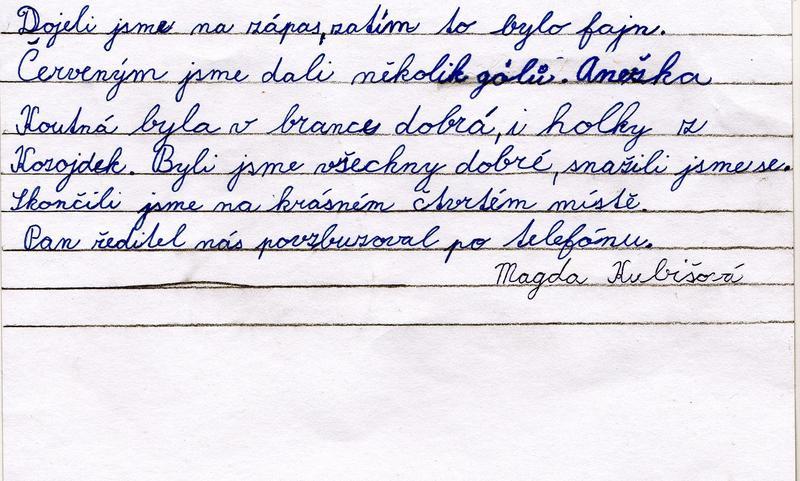 Dojeli jsme na zápas, zatím to bylo fajn.
Červeným jsme dali několik gólů. Anežka
Koutná byla v brance dobrá, i holky z
Kozojdek. Byli jsme všechny dobré, snažili jsme se.
Skončili jsme na krásném čtvrtém místě.
Pan ředitel nás povzbuzoval po telefónu.
Magda Kubišová